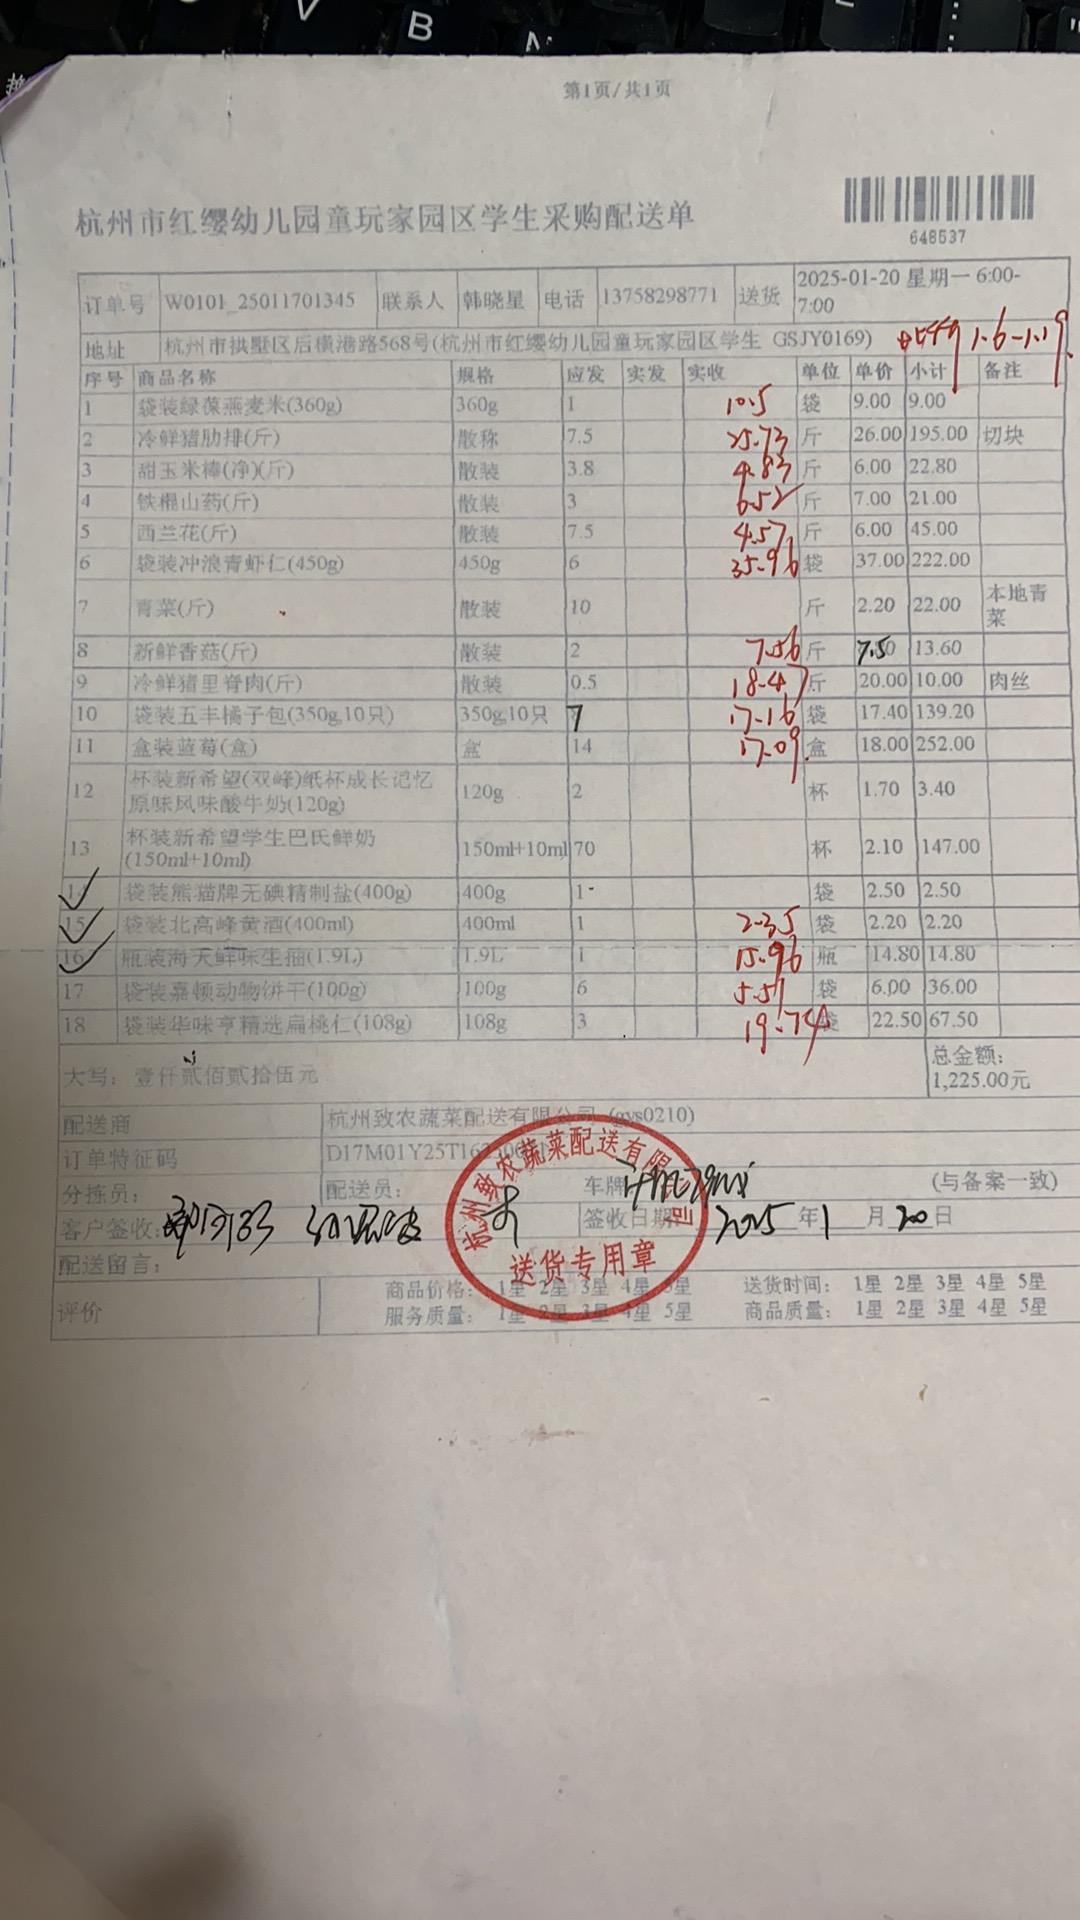 V
B
N
第1页/共1页
杭州市红缨幼儿园童玩家园区学生采购配送单
648537
订单号 W0101_25011701345 联系人 韩晓星 电话 13758298771 送货 2025-01-20 星期一 6:00-7:00
地址 杭州市拱墅区后横港路568号(杭州市红缨幼儿园童玩家园区学生 GSJY0169) 1.6-1.19
序号 商品名称 规格 应发 实发 实收 单位 单价 小计 备注
1 袋装绿葆燕麦米(360g) 360g 1 10.5 袋 9.00 9.00
2 冷鲜猪肋排(斤) 散称 7.5 25.73 斤 26.00 195.00 切块
3 甜玉米棒(净)(斤) 散装 3.8 4.83 斤 6.00 22.80
4 铁棍山药(斤) 散装 3 6.52 斤 7.00 21.00
5 西兰花(斤) 散装 7.5 4.57 斤 6.00 45.00
6 袋装冲浪青虾仁(450g) 450g 6 35.96 袋 37.00 222.00
7 青菜(斤) 散装 10 斤 2.20 22.00 本地青菜
8 新鲜香菇(斤) 散装 2 7.56 斤 7.50 13.60
9 冷鲜猪里脊肉(斤) 散装 0.5 18.47 斤 20.00 10.00 肉丝
10 袋装五丰橘子包(350g,10只) 350g,10只 7 17.16 袋 17.40 139.20
11 盒装蓝莓(盒) 盒 14 17.09 盒 18.00 252.00
12 杯装新希望(双峰)纸杯成长记忆原味风味酸牛奶(120g) 120g 2 杯 1.70 3.40
13 杯装新希望学生巴氏鲜奶(150ml+10ml) 150ml+10ml 70 杯 2.10 147.00
14 袋装熊猫牌无碘精制盐(400g) 400g 1 袋 2.50 2.50
15 袋装北高峰黄酒(400ml) 400ml 1 2.35 袋 2.20 2.20
16 瓶装海天鲜味生抽(1.9L) 1.9L 1 15.96 瓶 14.80 14.80
17 袋装嘉顿动物饼干(100g) 100g 6 5.57 袋 6.00 36.00
18 袋装华味亨精选扁桃仁(108g) 108g 3 19.74 袋 22.50 67.50
大写: 壹仟贰佰贰拾伍元 总金额: 1,225.00元
配送商 杭州致农蔬菜配送有限公司 (gys0210)
订单特征码 D17M01Y25T16
分拣员: 配送员: 车牌 (与备案一致)
客户签收: 签收日期 2025 年 1 月 20 日
杭州致农蔬菜配送有限公司
送货专用章
配送留言:
评价 商品价格: 1星 2星 3星 4星 5星 送货时间: 1星 2星 3星 4星 5星
服务质量: 1星 2星 3星 4星 5星 商品质量: 1星 2星 3星 4星 5星